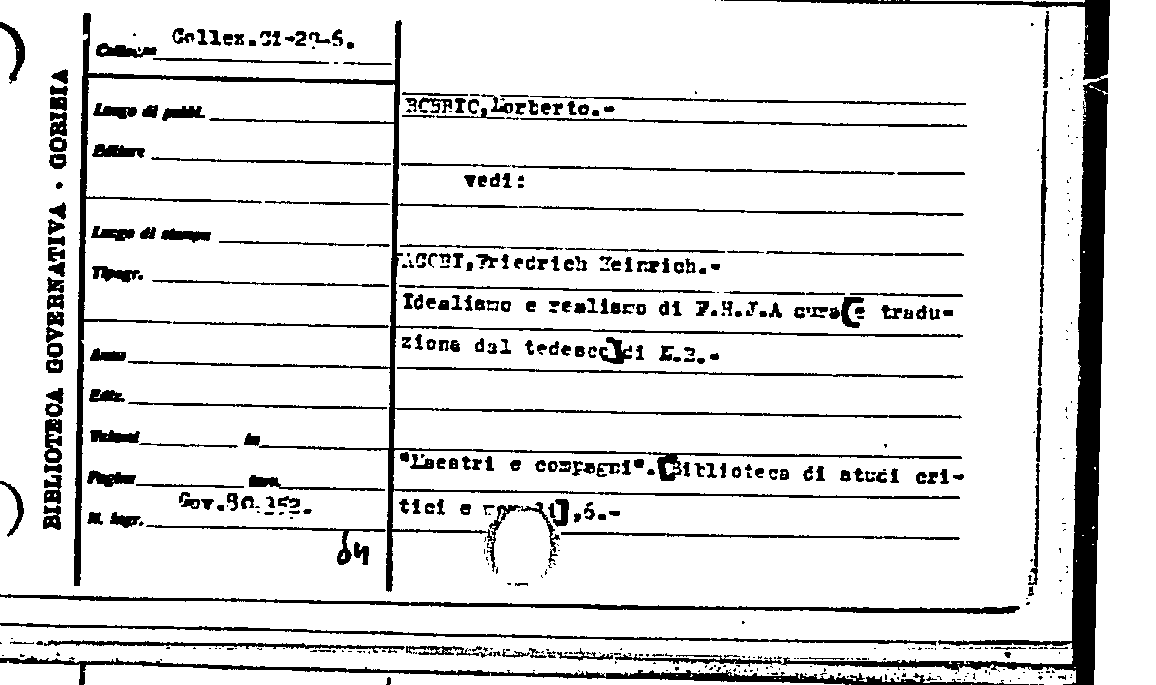 BIBLIOTECA GOVERNATIVA · GORIZIA
Collez.CI-20-6.
Luogo di pubbl.
Editore
Luogo di stampa
Tipogr.
Anno
Ediz.
Volumi in
Pagine
N. ingr. Gov.80.152.
84
BOBBIO,Norberto.-
vedi:
JACOBI,Friedrich Heinrich.-
Idealismo e realismo di F.H.J.A cura[e tradu-
zione dal tedesco]di N.B.-
"Maestri e compagni".[Biblioteca di studi cri-
tici e morali],6.-